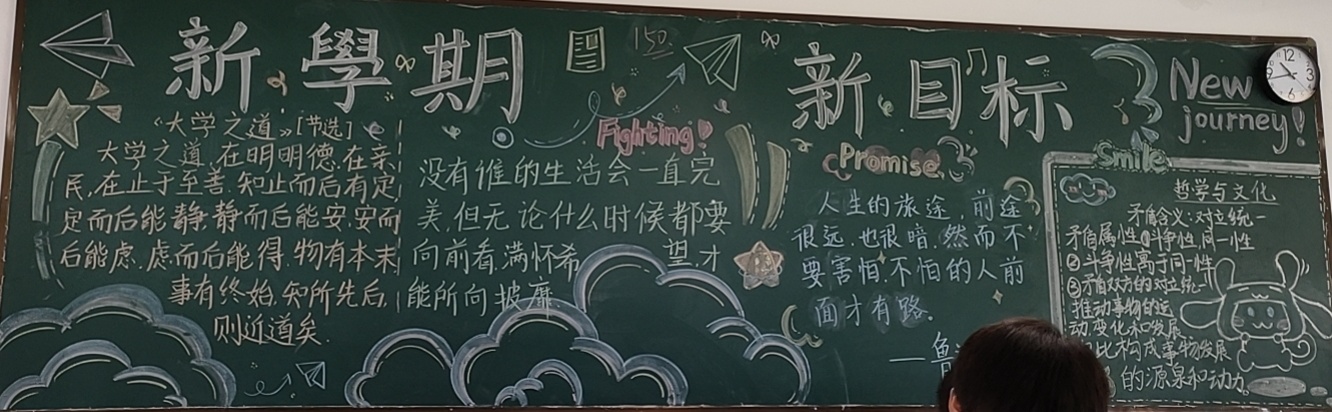 新學期
150
新目标
New
journey!
《大学之道》[节选]
大学之道,在明明德,在亲
民,在止于至善.知止而后有定
定而后能静,静而后能安,安而
后能虑.虑而后能得.物有本末
事有终始.知所先后,
则近道矣.
Fighting!
没有谁的生活会一直完
美,但无论什么时候都要
向前看,满怀希望,才
能所向披靡
Promise
人生的旅途,前途
很远,也很暗.然而不
要害怕,不怕的人前
面才有路。
——鲁
Smile
哲学与文化
矛盾含义:对立统一
矛盾属性①斗争性,同一性
②斗争性寓于同一性
③矛盾双方的对立统一
推动事物的运
动,变化和发展
比构成事物发展
的源泉和动力
12
3
6
9